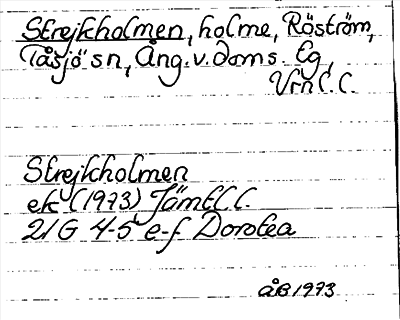 Strejkholmen, holme, Röström,
Tåsjö sn, Ång. v. doms. Eg,
Vrn C.C.
Strejkholmen
ek (1973) Jämt C.C.
21G 4-5 e-f Dorotea
ÅB 1973